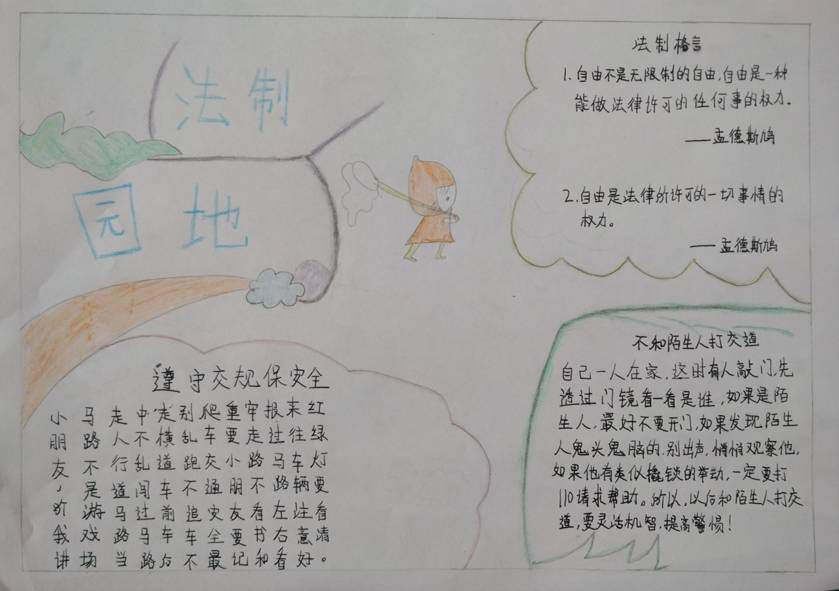 法制
园地
法制格言
1.自由不是无限制的自由,自由是一种
能做法律许可的任何事的权力。
——孟德斯鸠
2.自由是法律所许可的一切事情的
权力。
——孟德斯鸠
遵守交规保安全
小朋友，听我讲
马路不是游戏场
走人行道马路当
中不乱闯过马路
走横道车前车后
别乱跑不追车不
爬车交通安全最
重要小朋友要记
牢走路不看书和
报过马路左右看
来往车辆注意好
红绿灯要看清。
不和陌生人打交道
自己一人在家,这时有人敲门,先
透过门镜看一看是谁,如果是陌
生人,最好不要开门,如果发现陌生
人鬼头鬼脑的,别出声,悄悄观察他,
如果他有类似撬锁的举动,一定要打
110请求帮助。所以,以后和陌生人打交
道,要灵活机智,提高警惕!